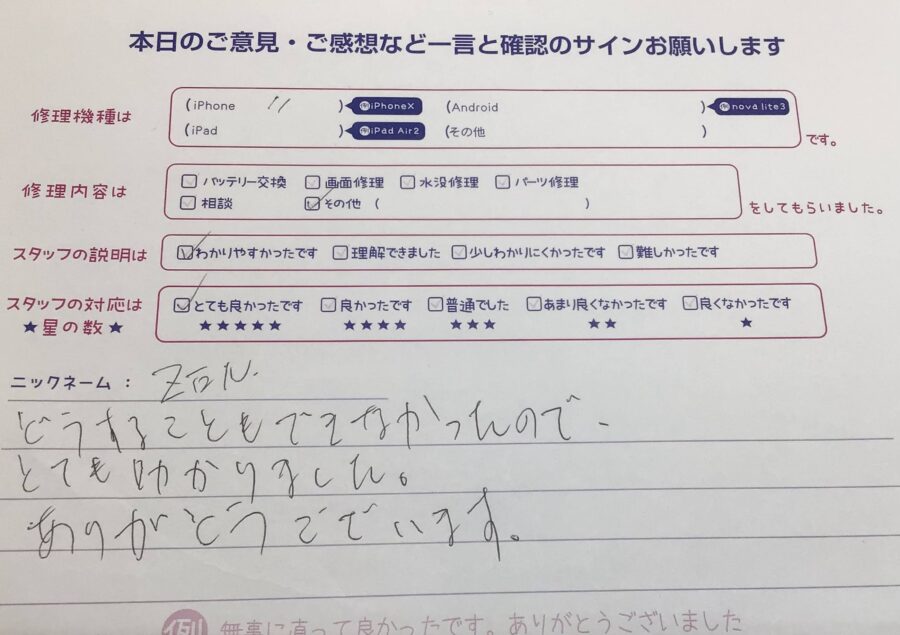 本日のご意見・ご感想など一言と確認のサインお願いします
修理機種は (iPhone 11 ) 例iPhoneX (Android ) 例nova lite3
(iPad ) 例iPad Air2 (その他 ) です。
修理内容は バッテリー交換 画面修理 水没修理 パーツ修理
相談 その他 ( ) をしてもらいました。
スタッフの説明は わかりやすかったです 理解できました 少しわかりにくかったです 難しかったです
スタッフの対応は とても良かったです 良かったです 普通でした あまり良くなかったです 良くなかったです
★星の数★ ★★★★★ ★★★★ ★★★ ★★ ★
ニックネーム :
どうすることもできなかったので、
とても助かりました。
ありがとうございます。
例 無事に直って良かったです。ありがとうございました